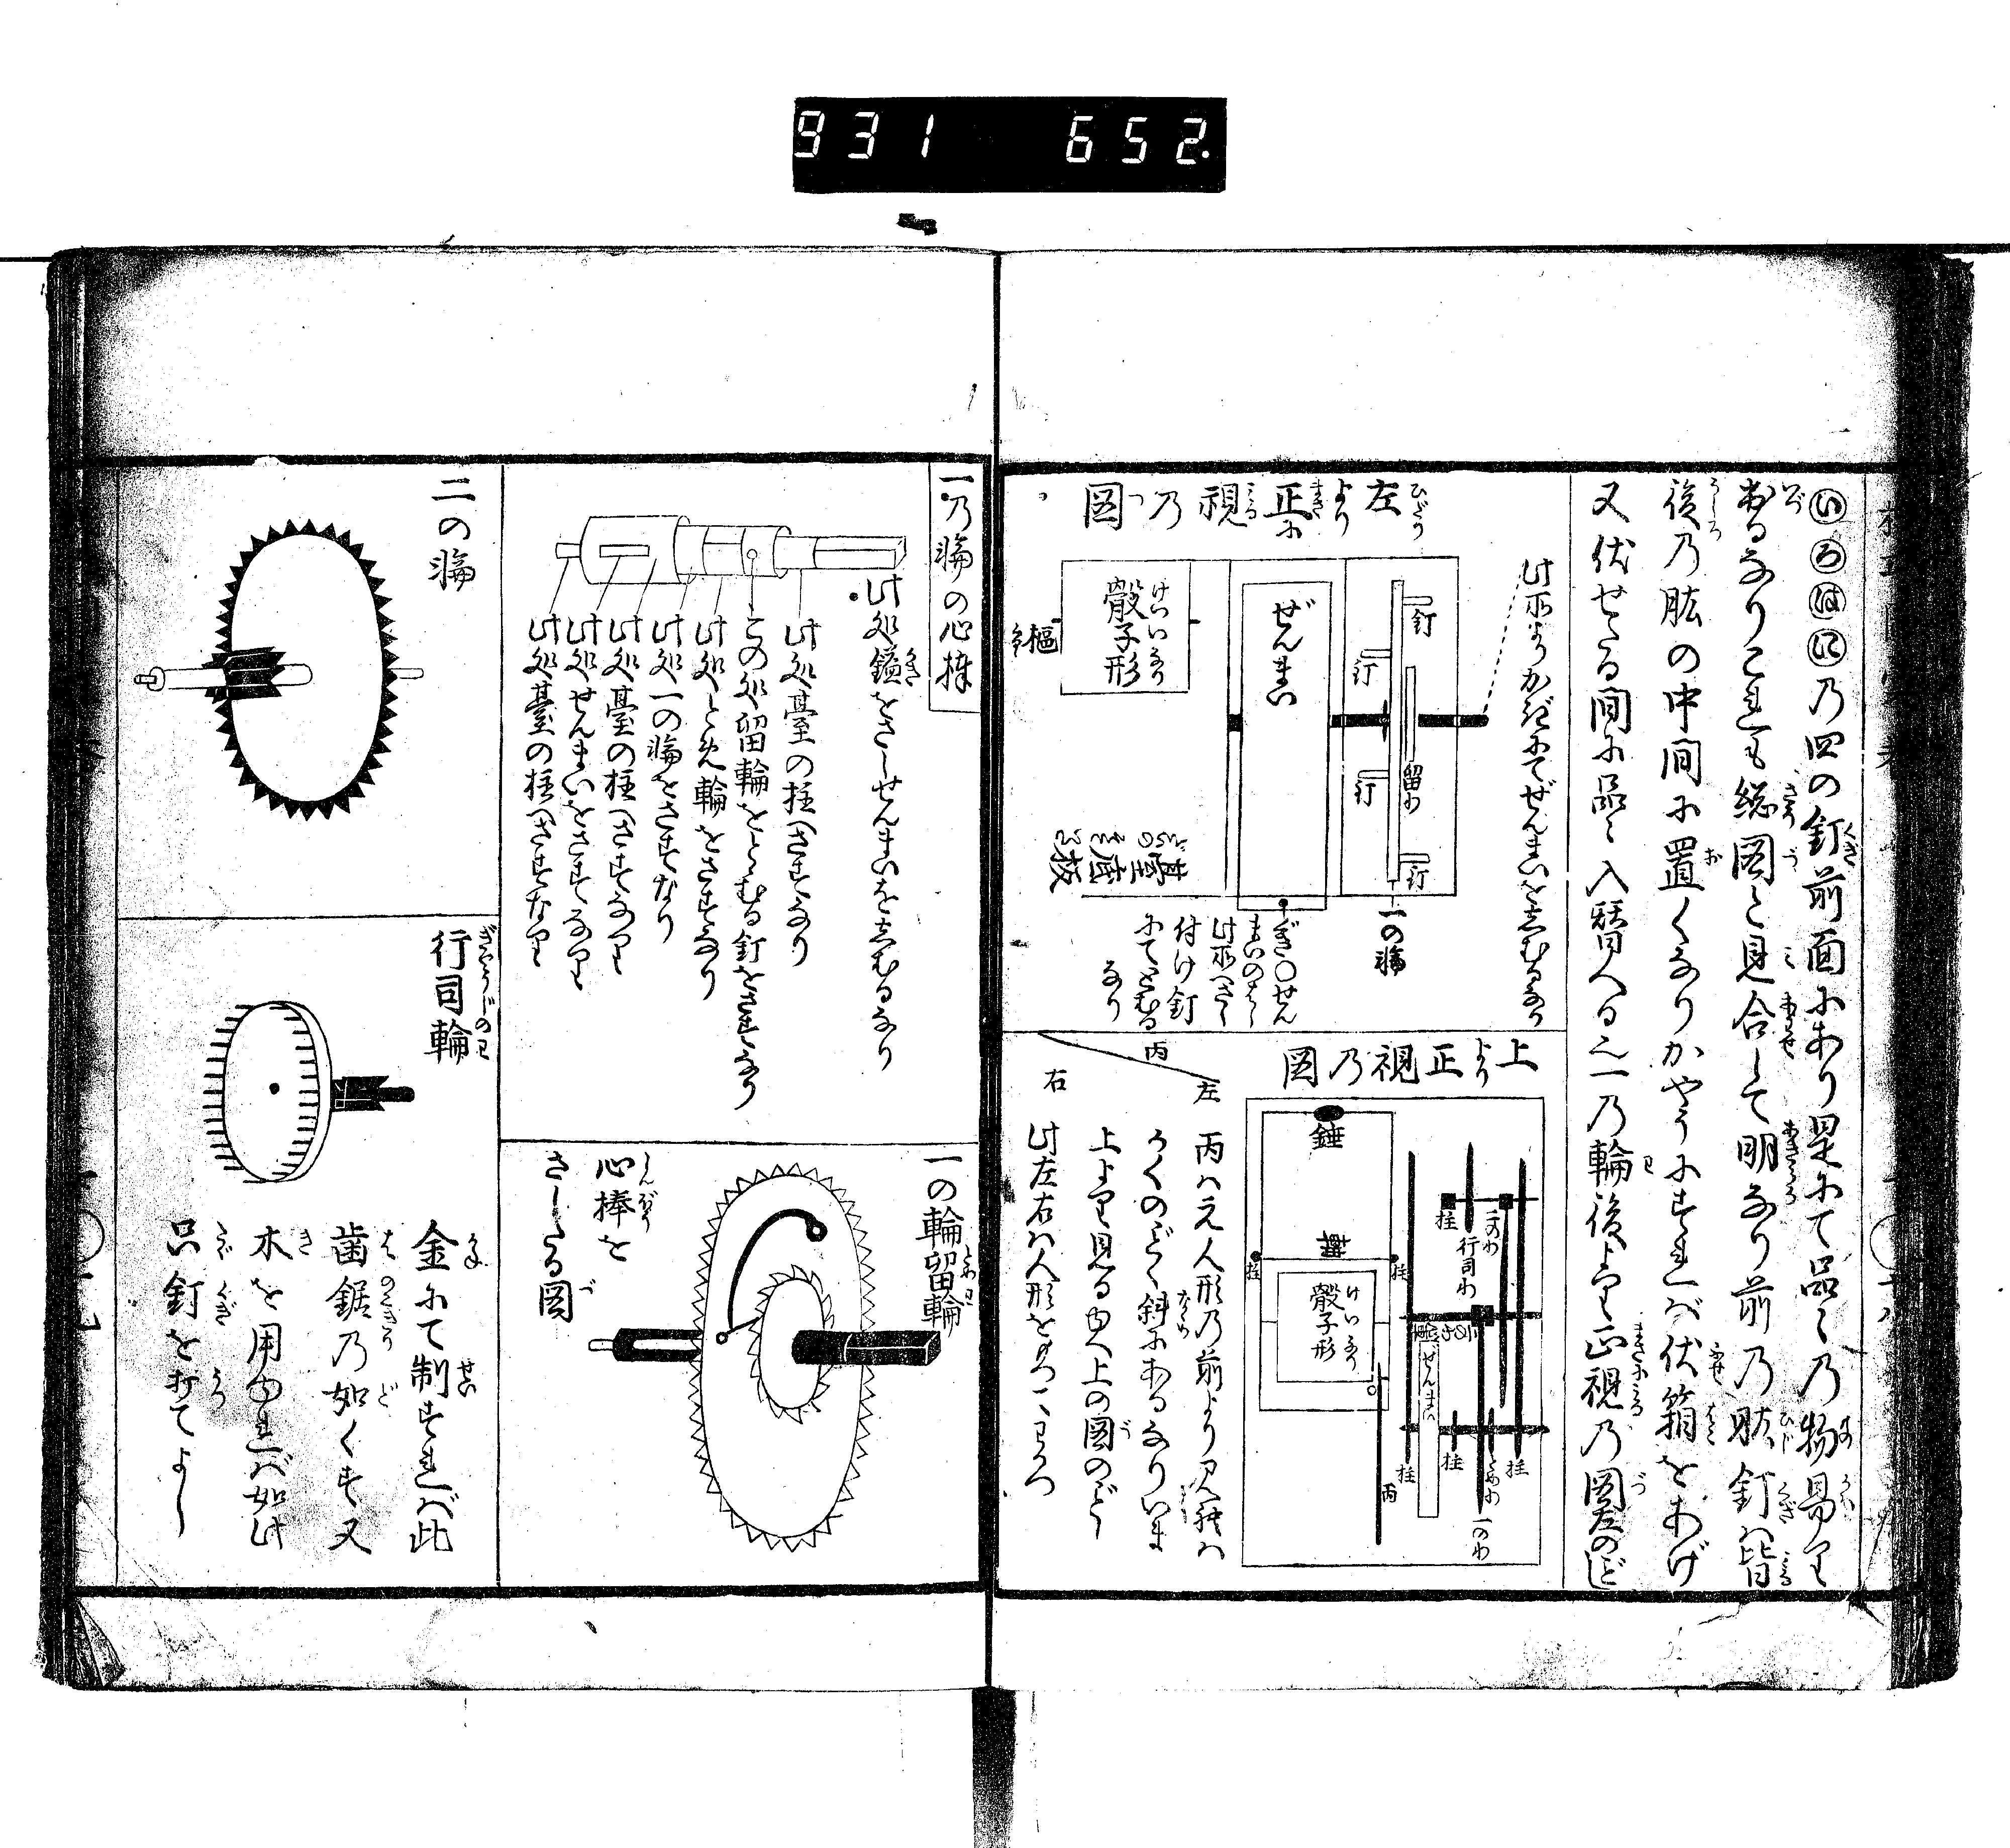 931 652.
㋑㋺㋩㋥乃四の釘前面にあり是にて品〻乃物易り
出るなりこれも総図と見合して明なり前乃肱釘ハ皆
後乃肱の中間に置くなりかやうにすれバ伏箱をあげ
又伏せる間に品〻入替へる也一乃輪後より正視乃図左のごとし
左より正に視乃図
此所よりかぎにてぜんまいをしむるなり
釘
釘
釘
釘
留わ
一の輪
ぜんまい
骰子形
樞
ぎ〇せん
まいのはし
此所へさし
付け釘
にてとむる
なり
上より正視乃図
錘
骰子形
柱
柱
柱
二のわ
行司わ
ぜんまい
柱
柱
とめわ
柱
一のわ
丙
丙
左
右
丙ハ元人形乃前より見れハ
かくのごく斜にあるなりいま
上より見る由へ上の図のごとし
此左右ハ人形をもつていふ
一乃輪の心棒
此処鎰をさしせんまいをしむるなり
此処臺の柱へさすなり
この処留輪をとむる釘をさすなり
此処とめ輪をさすなり
此処一の輪をさすなり
此処臺の柱へさすなり
此処せんまいをさすなり
此処臺の柱へさすなり
一の輪留輪
心棒を
さしたる図
二の輪
行司輪
金にて制すれバ此
歯鋸乃如くす又
木を用ゆれバ如此
只釘を打てよし